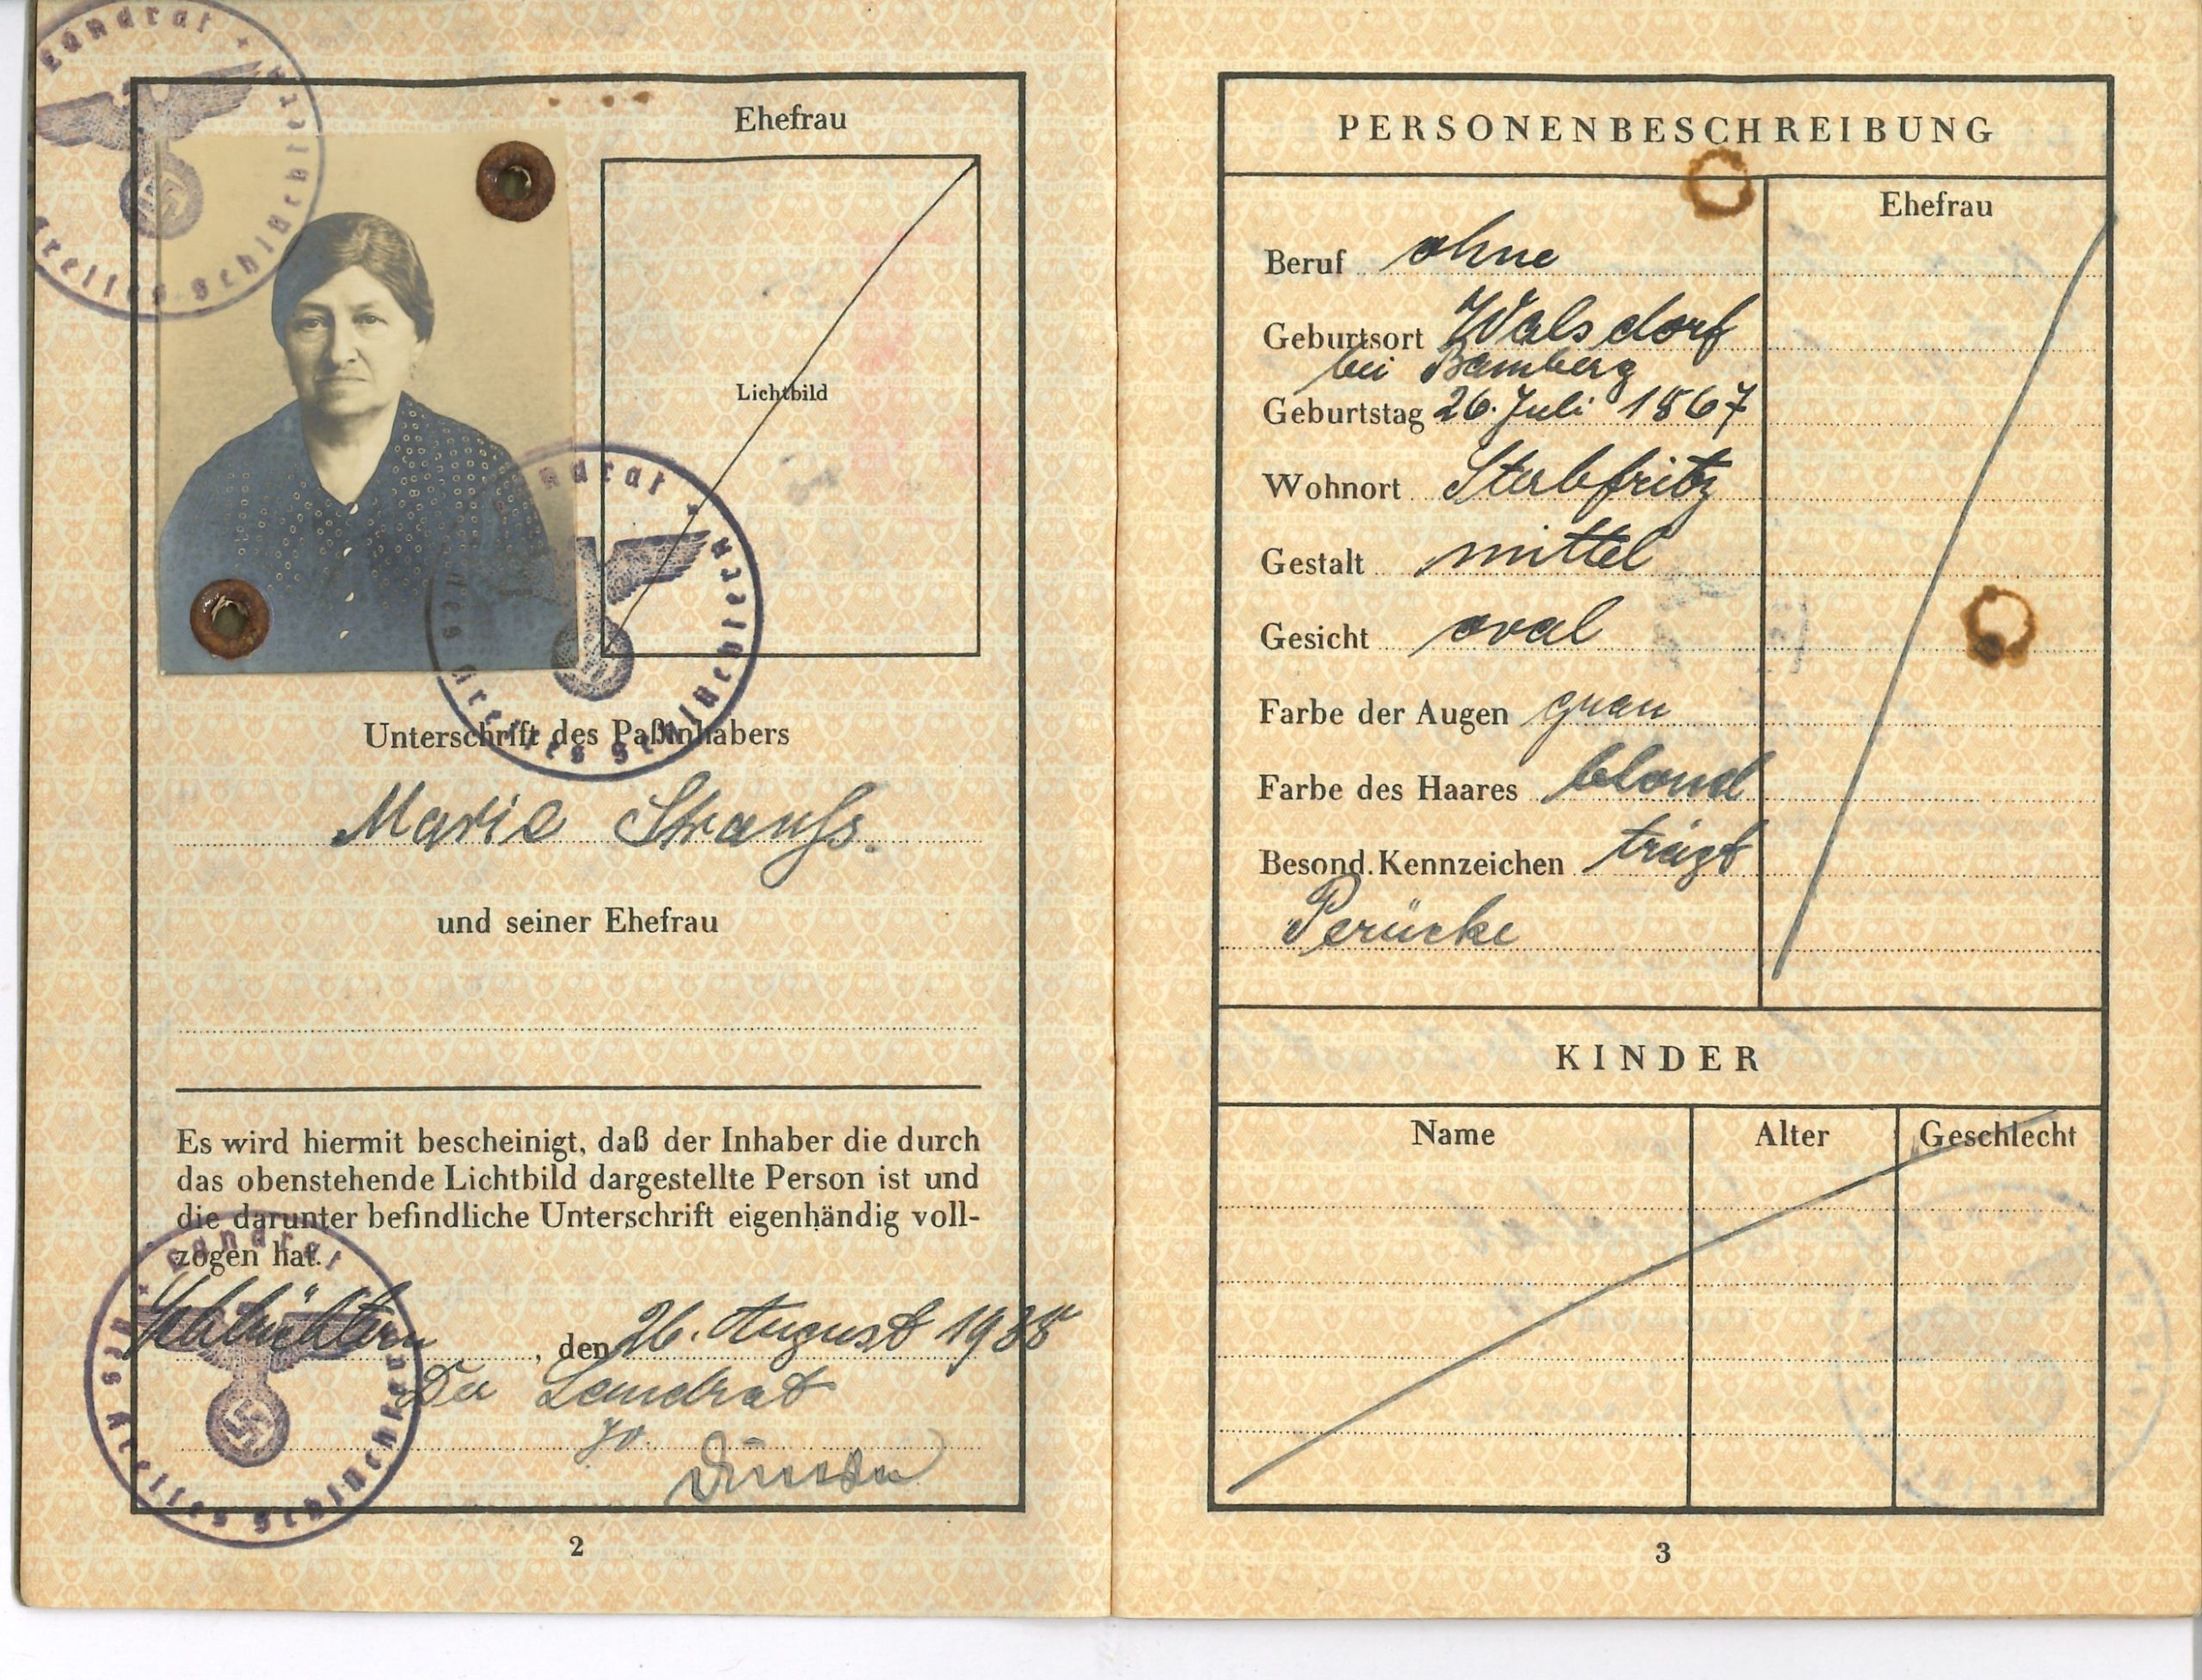 Landrat
des Kreises Schlüchtern
Ehefrau
Lichtbild
Landrat
des Kreises Schlüchtern
Unterschrift des Paßinhabers
Marie Strauß.
und seiner Ehefrau
Es wird hiermit bescheinigt, daß der Inhaber die durch
das obenstehende Lichtbild dargestellte Person ist und
die darunter befindliche Unterschrift eigenhändig voll-
zogen hat.
Schlüchtern, den 26. August 1938
Der Landrat
Landrat
des Kreises Schlüchtern
2
PERSONENBESCHREIBUNG
Ehefrau
Beruf ohne
Geburtsort Walsdorf
bei Bamberg
Geburtstag 26. Juli 1867
Wohnort Sterbfritz
Gestalt mittel
Gesicht oval
Farbe der Augen grau
Farbe des Haares blond
Besond. Kennzeichen trägt
Perücke
KINDER
Name Alter Geschlecht
3